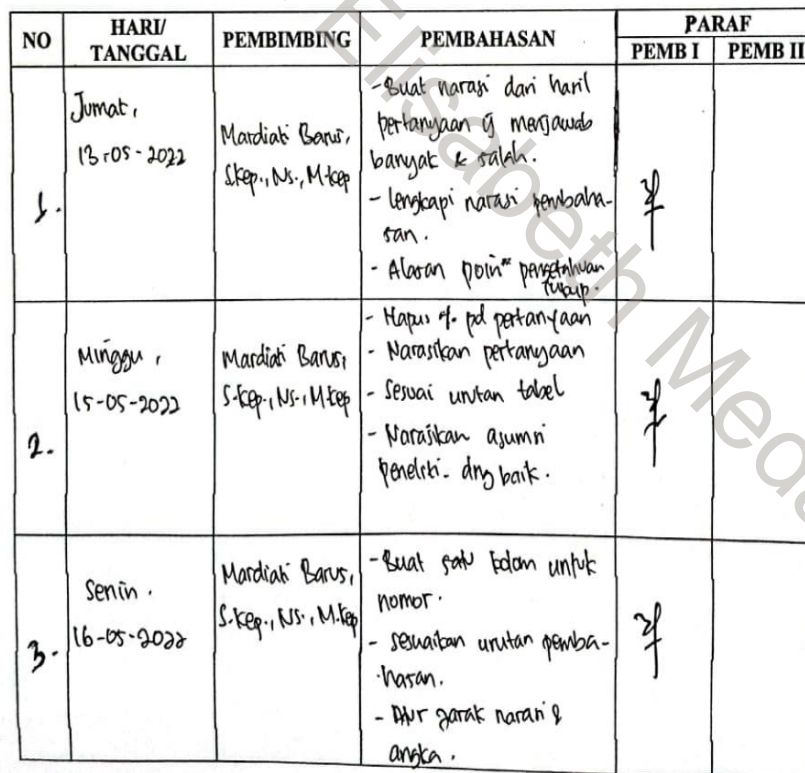 NO HARI/ TANGGAL PEMBIMBING PEMBAHASAN PARAF
PEMB I PEMB II
1.
Jumat,
13-05-2022
Mardiati Barus,
S.kep., Ns., M.kep
- Buat narasi dari hasil
pertanyaan yg menjawab
banyak & salah.
- Lengkapi narasi pembaha-
san.
- Alasan poin" pengetahuan
cukup.
2.
Minggu,
15-05-2022
Mardiati Barus,
S.kep., Ns., M.kep
- Hapus %. pd pertanyaan
- Narasikan pertanyaan
- Sesuai urutan tabel
- Narasikan asumsi
peneliti. dng baik.
3.
Senin.
16-05-2022
Mardiati Barus,
S.kep., Ns., M.kep
- Buat satu kolom untuk
nomor.
- sesuaikan urutan pemba-
hasan.
- Atur jarak narasi &
angka.
Elisabeth Meda